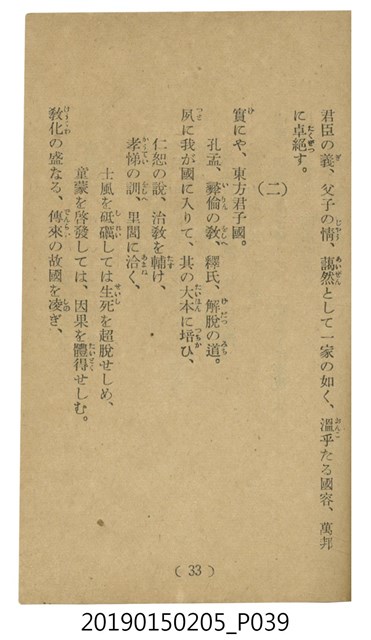 君臣の義、父子の情、藹然として一家の如く、溫乎たる國容、萬邦
に卓絕す。
(二)
實にや、東方君子國。
孔孟、彜倫の敎、釋氏、解脫の道。
夙に我が國に入りて、其の大本に培ひ、
仁恕の說、治敎を輔け、
孝悌の訓、里閭に洽く、
士風を砥礪しては生死を超脫せしめ、
童蒙を啓發しては、因果を體得せしむ。
敎化の盛なる、傳來の故國を凌ぎ、
( 33 )
20190150205_P039